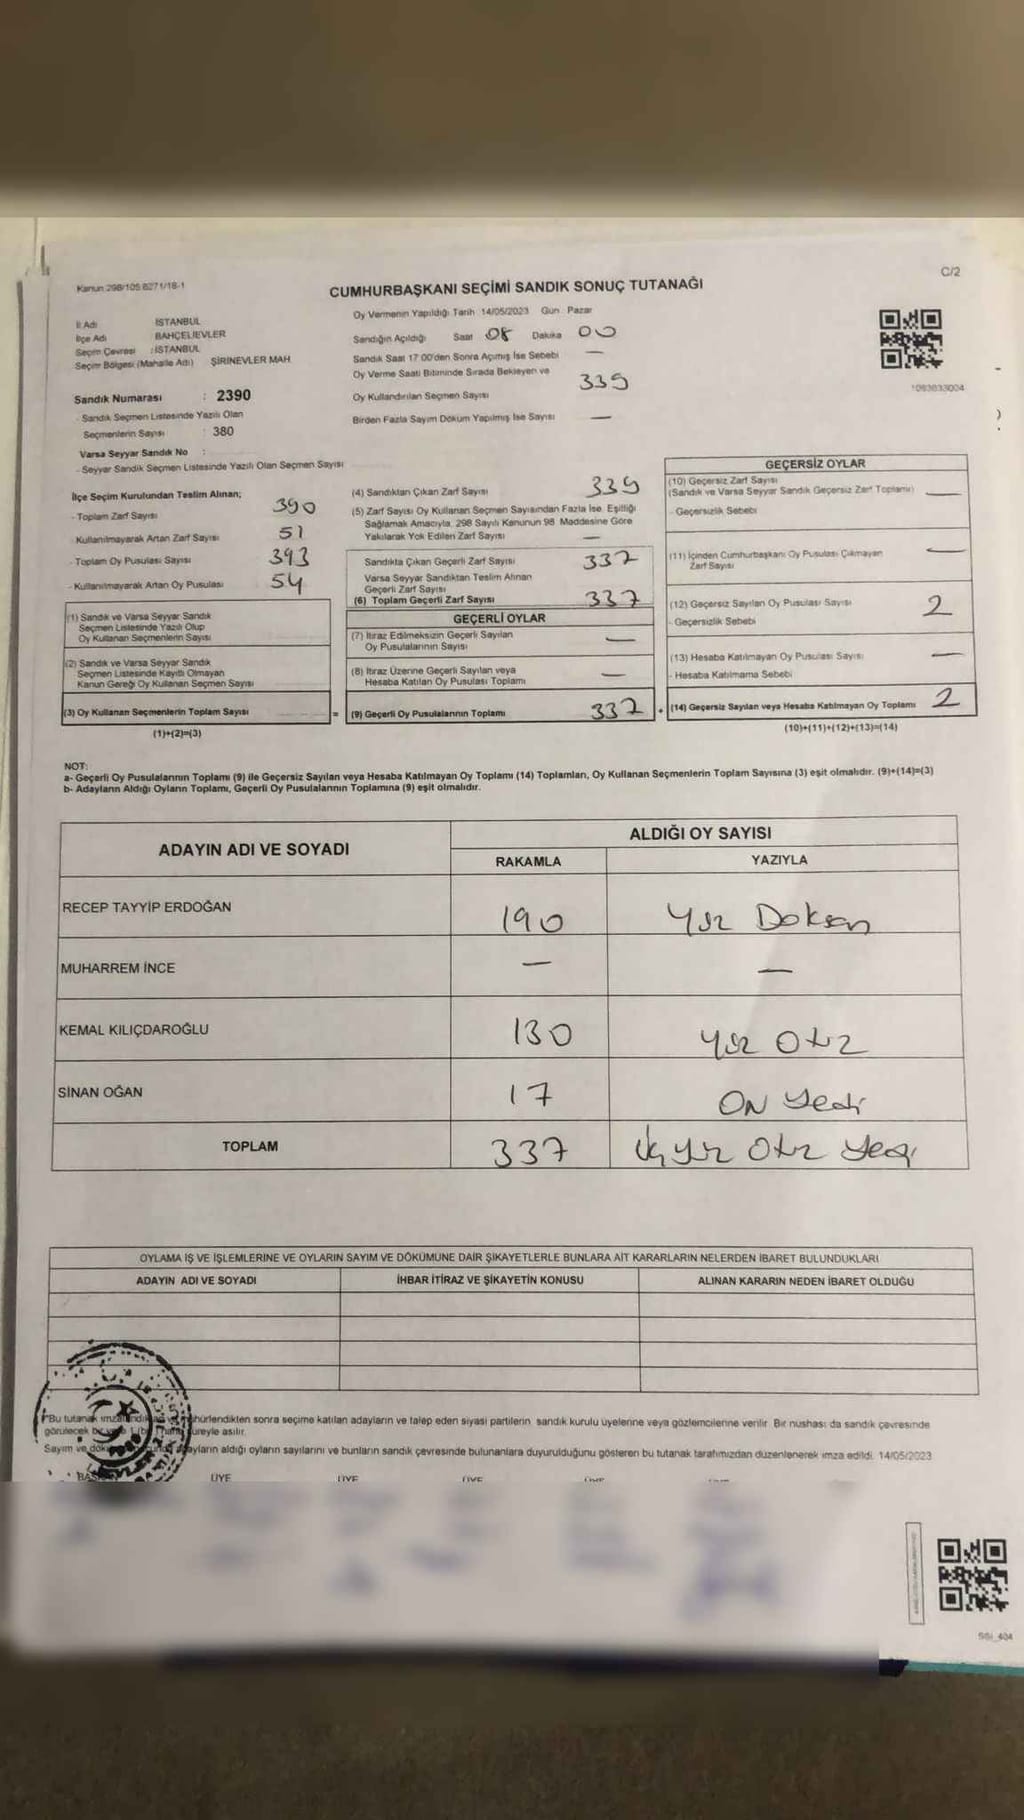 C/2
Kanun 298/105 6271/18-1
CUMHURBAŞKANI SEÇİMİ SANDIK SONUÇ TUTANAĞI
İl Adı İSTANBUL
İlçe Adı BAHÇELİEVLER
Seçim Çevresi :İSTANBUL
Seçim Bölgesi (Mahalle Adı) ŞİRİNEVLER MAH
Sandık Numarası : 2390
- Sandık Seçmen Listesinde Yazılı Olan
Seçmenlerin Sayısı : 380
Varsa Seyyar Sandık No :
- Seyyar Sandık Seçmen Listesinde Yazılı Olan Seçmen Sayısı
Oy Vermenin Yapıldığı Tarih 14/05/2023 Gün Pazar
Sandığın Açıldığı Saat 08 Dakika 00
Sandık Saat 17 00'den Sonra Açımış İse Sebebi —
Oy Verme Saati Bitiminde Sırada Bekleyen ve
Oy Kullandırılan Seçmen Sayısı 339
Birden Fazla Sayım Döküm Yapılmış İse Sayısı —
1063633004
İlçe Seçim Kurulundan Teslim Alınan;
- Toplam Zarf Sayısı 390
- Kullanılmayarak Artan Zarf Sayısı 51
- Toplam Oy Pusulası Sayısı 393
- Kullanılmayarak Artan Oy Pusulası 54
(1) Sandık ve Varsa Seyyar Sandık
Seçmen Listesinde Yazılı Olup
Oy Kullanan Seçmenlerin Sayısı
(2) Sandık ve Varsa Seyyar Sandık
Seçmen Listesinde Kayıtlı Olmayan
Kanun Gereği Oy Kullanan Seçmen Sayısı
(3) Oy Kullanan Seçmenlerin Toplam Sayısı =
(1)+(2)=(3)
(4) Sandıktan Çıkan Zarf Sayısı 339
(5) Zarf Sayısı Oy Kullanan Seçmen Sayısından Fazla İse, Eşitliği
Sağlamak Amacıyla, 298 Sayılı Kanunun 98 Maddesine Göre
Yakılarak Yok Edilen Zarf Sayısı —
Sandıkta Çıkan Geçerli Zarf Sayısı 337
Varsa Seyyar Sandıktan Teslim Alınan
Geçerli Zarf Sayısı
(6) Toplam Geçerli Zarf Sayısı 337
GEÇERLİ OYLAR
(7) İtiraz Edilmeksizin Geçerli Sayılan
Oy Pusulalarının Sayısı —
(8) İtiraz Üzerine Geçerli Sayılan veya
Hesaba Katılan Oy Pusulası Toplamı —
(9) Geçerli Oy Pusulalarının Toplamı 337 +
GEÇERSİZ OYLAR
(10) Geçersiz Zarf Sayısı
(Sandık ve Varsa Seyyar Sandık Geçersiz Zarf Toplamı) —
- Geçersizlik Sebebi
(11) İçinden Cumhurbaşkanı Oy Pusulası Çıkmayan
Zarf Sayısı —
(12) Geçersiz Sayılan Oy Pusulası Sayısı 2
- Geçersizlik Sebebi
(13) Hesaba Katılmayan Oy Pusulası Sayısı —
- Hesaba Katılmama Sebebi
(14) Geçersiz Sayılan veya Hesaba Katılmayan Oy Toplamı 2
(10)+(11)+(12)+(13)=(14)
NOT:
a- Geçerli Oy Pusulalarının Toplamı (9) ile Geçersiz Sayılan veya Hesaba Katılmayan Oy Toplamı (14) Toplamları, Oy Kullanan Seçmenlerin Toplam Sayısına (3) eşit olmalıdır. (9)+(14)=(3)
b- Adayların Aldığı Oyların Toplamı, Geçerli Oy Pusulalarının Toplamına (9) eşit olmalıdır.
ADAYIN ADI VE SOYADI
ALDIĞI OY SAYISI
RAKAMLA YAZIYLA
RECEP TAYYİP ERDOĞAN 190 Yüz Doksan
MUHARREM İNCE — —
KEMAL KILIÇDAROĞLU 130 Yüz Otuz
SİNAN OĞAN 17 ON Yedi
TOPLAM 337 Üç Yüz Otuz Yedi
OYLAMA İŞ VE İŞLEMLERİNE VE OYLARIN SAYIM VE DÖKÜMÜNE DAİR ŞİKAYETLERLE BUNLARA AİT KARARLARIN NELERDEN İBARET BULUNDUKLARI
ADAYIN ADI VE SOYADI İHBAR İTİRAZ VE ŞİKAYETİN KONUSU ALINAN KARARIN NEDEN İBARET OLDUĞU
Bu tutanak mühürlendikten sonra seçime katılan adayların ve talep eden siyasi partilerin sandık kurulu üyelerine veya gözlemcilerine verilir. Bir nüshası da sandık çevresinde
görülecek bir süreyle asılır.
Sayım ve adayların aldığı oyların sayılarını ve bunların sandık çevresinde bulunanlara duyurulduğunu gösteren bu tutanak tarafımızdan düzenlenerek imza edildi. 14/05/2023
ÜYE ÜYE ÜYE
SSI_404